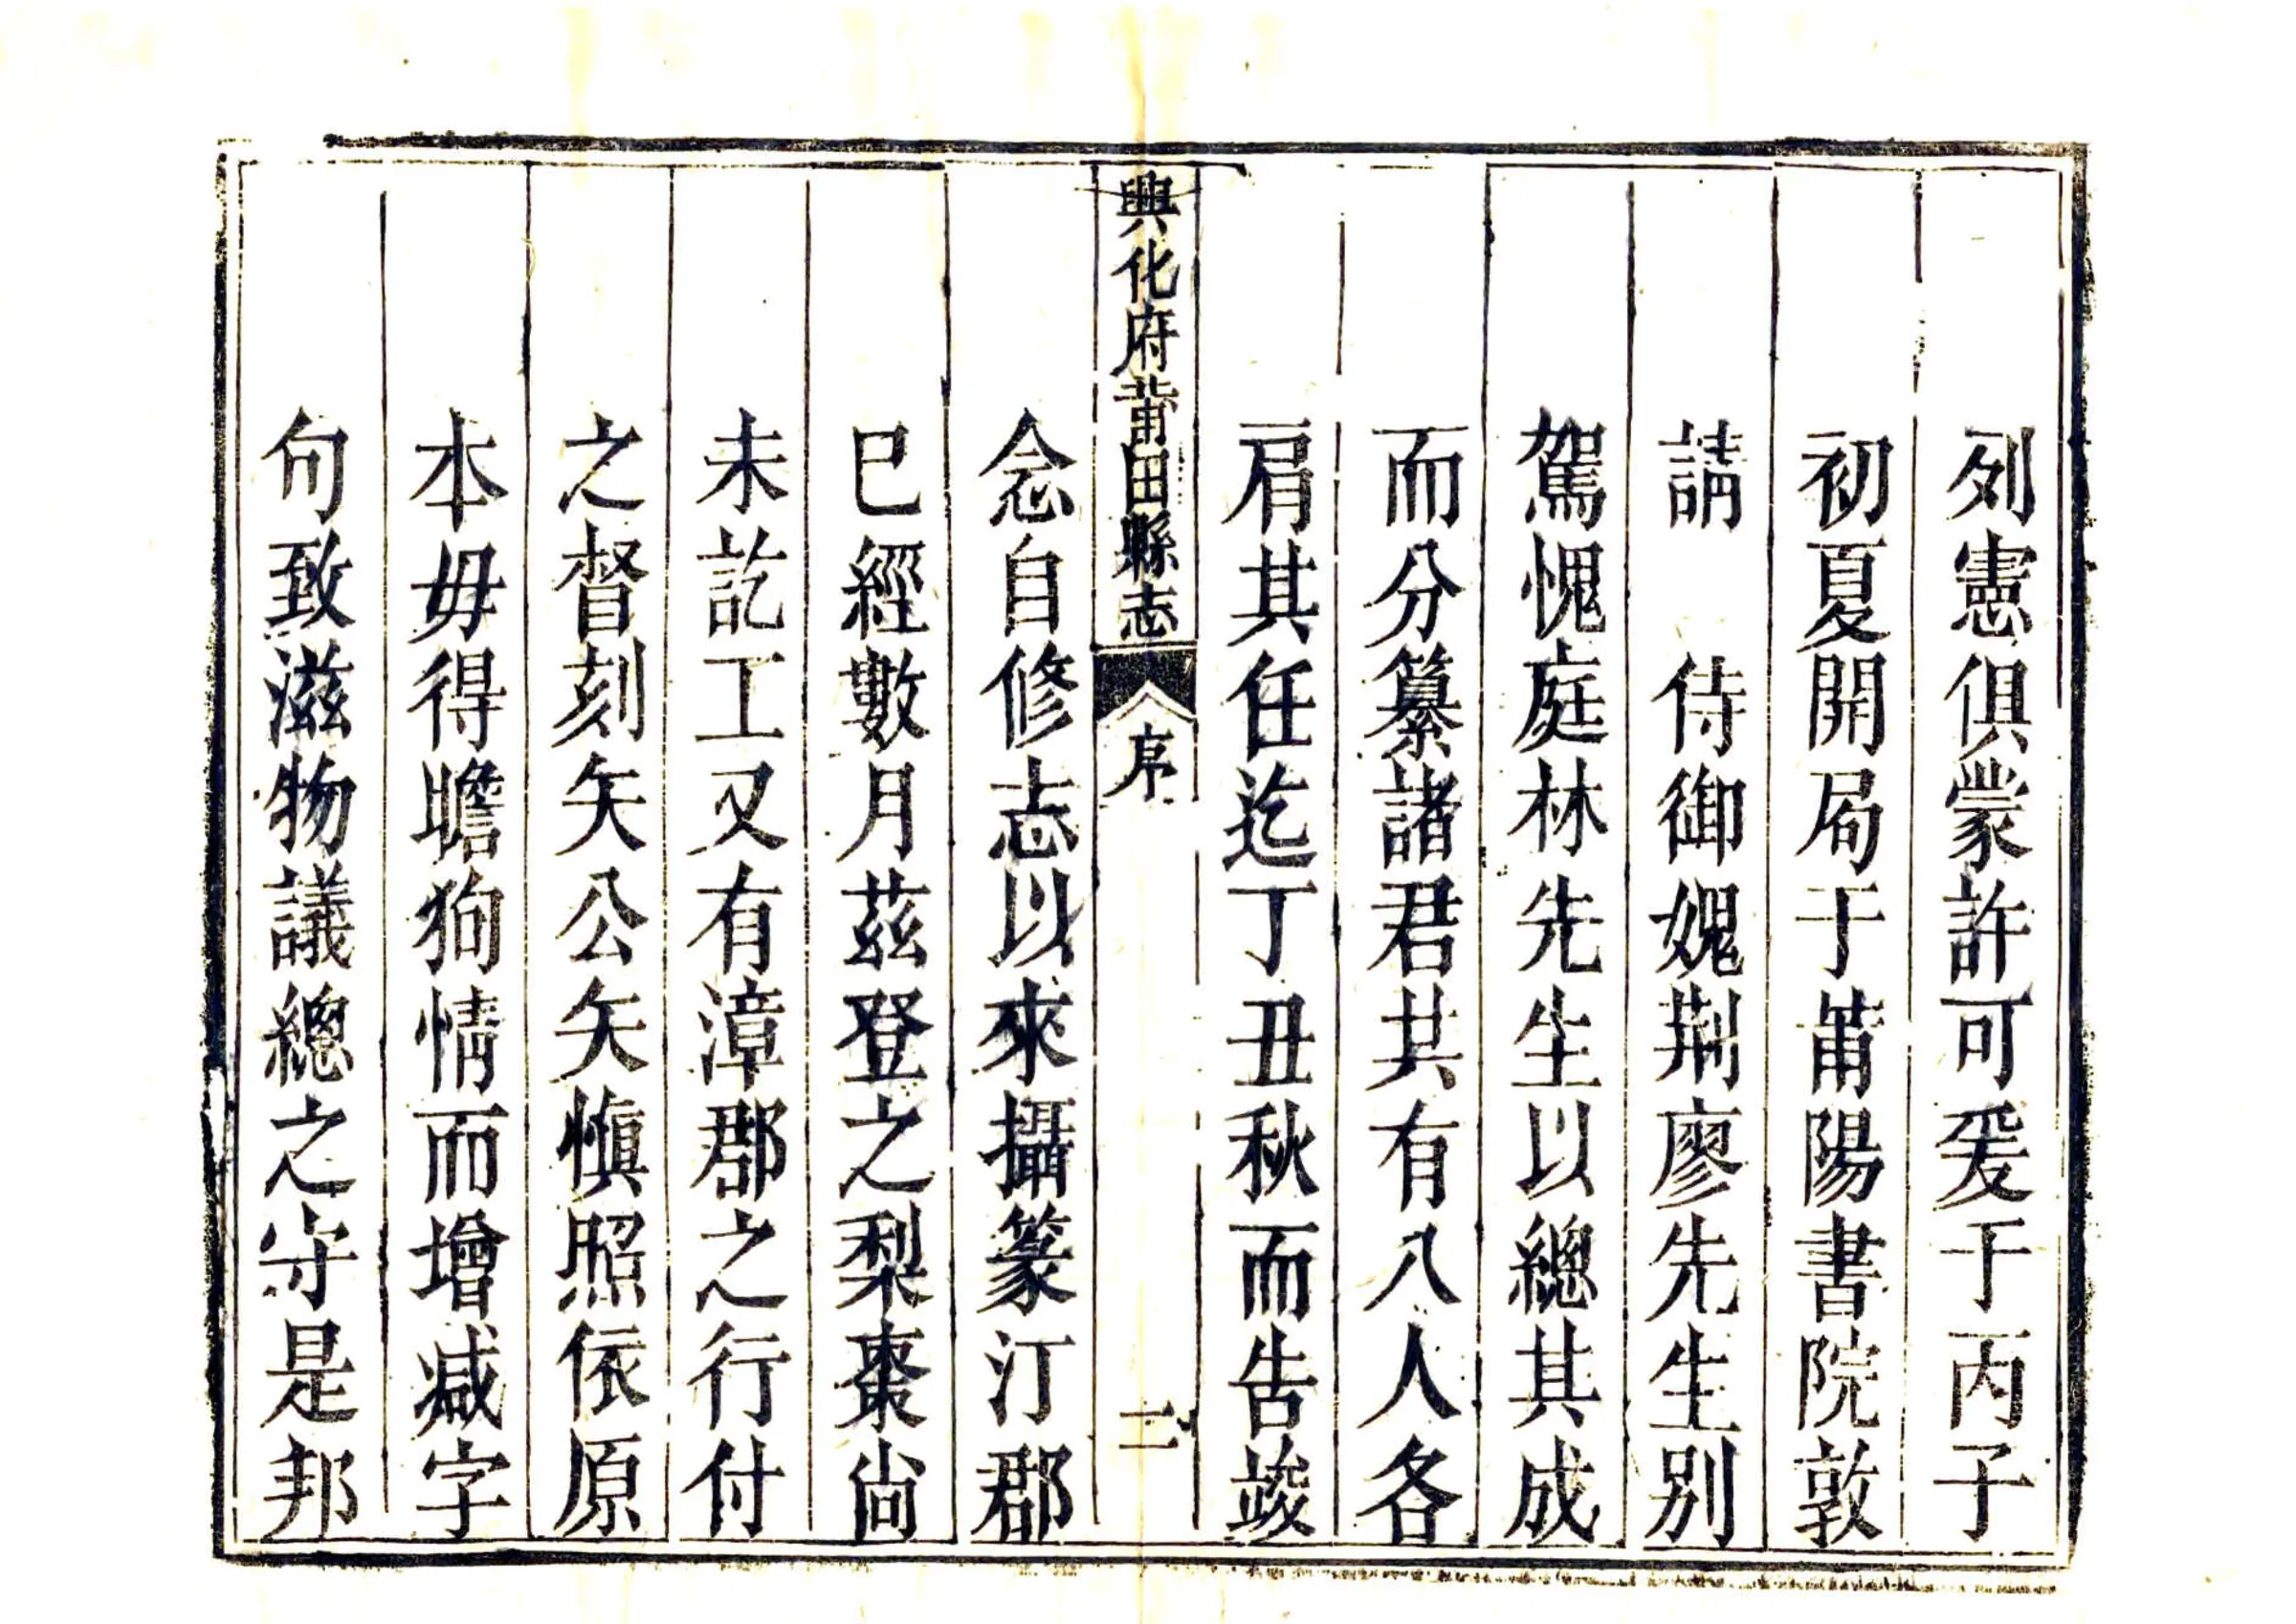 列憲俱蒙許可爰于丙子
初夏開局于莆陽書院敦
請　侍御媿荆廖先生别
駕愧庭林先生以總其成
而分纂諸君共有八人各
肩其任迄丁丑秋而告竣
興化府莆田縣志
序
二
念自修志以來攝篆汀郡
已經數月茲登之梨棗尚
未訖工又有漳郡之行付
之督刻矢公矢愼照依原
本毋得瞻狥情而增减字
句致滋物議總之守是邦